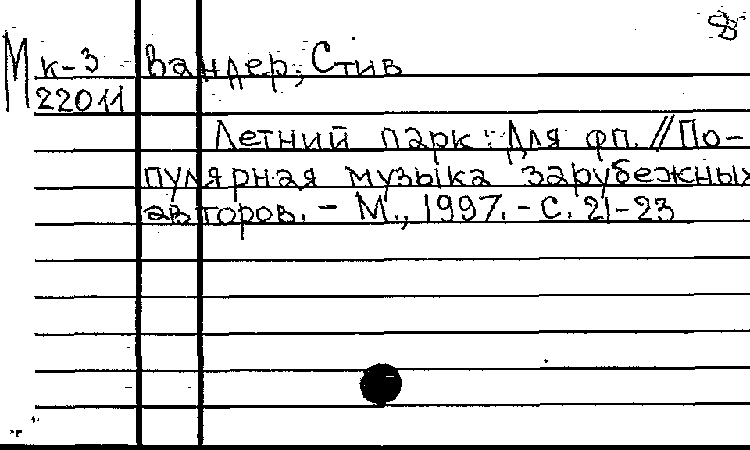 М к-3 Вандер, Стив
22011
Летний парк: Для фп. // По-
пулярная музыка зарубежных
авторов. - М., 1997. - С. 21-23